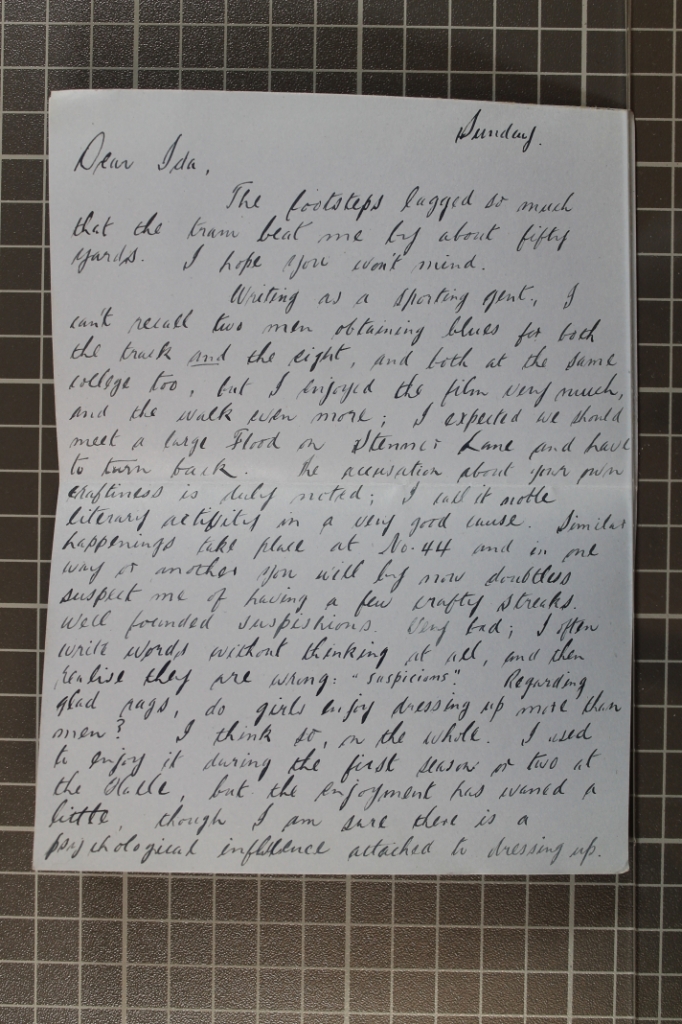 Sunday.
Dear Ida,
The footsteps lagged so much
that the tram beat me by about fifty
yards. I hope you won't mind.
Writing as a sporting gent, I
can't recall two men obtaining blues for both
the track and the eight, and both at the same
college too, but I enjoyed the film very much,
and the walk even more; I expected we should
meet a large Flood on Stenner Lane and have
to turn back. The accusation about your own
craftiness is duly noted; I call it noble
literary activity in a very good cause. Similar
happenings take place at No. 44 and in one
way or another you will by now doubtless
suspect me of having a few crafty streaks.
Well founded suspishions. Very bad; I often
write words without thinking at all, and then
realise they are wrong: "suspicions". Regarding
glad rags, do girls enjoy dressing up more than
men? I think so, on the whole. I used
to enjoy it during the first season or two at
the Halle, but the enjoyment has waned a
little, though I am sure there is a
psychological influence attached to dressing up.